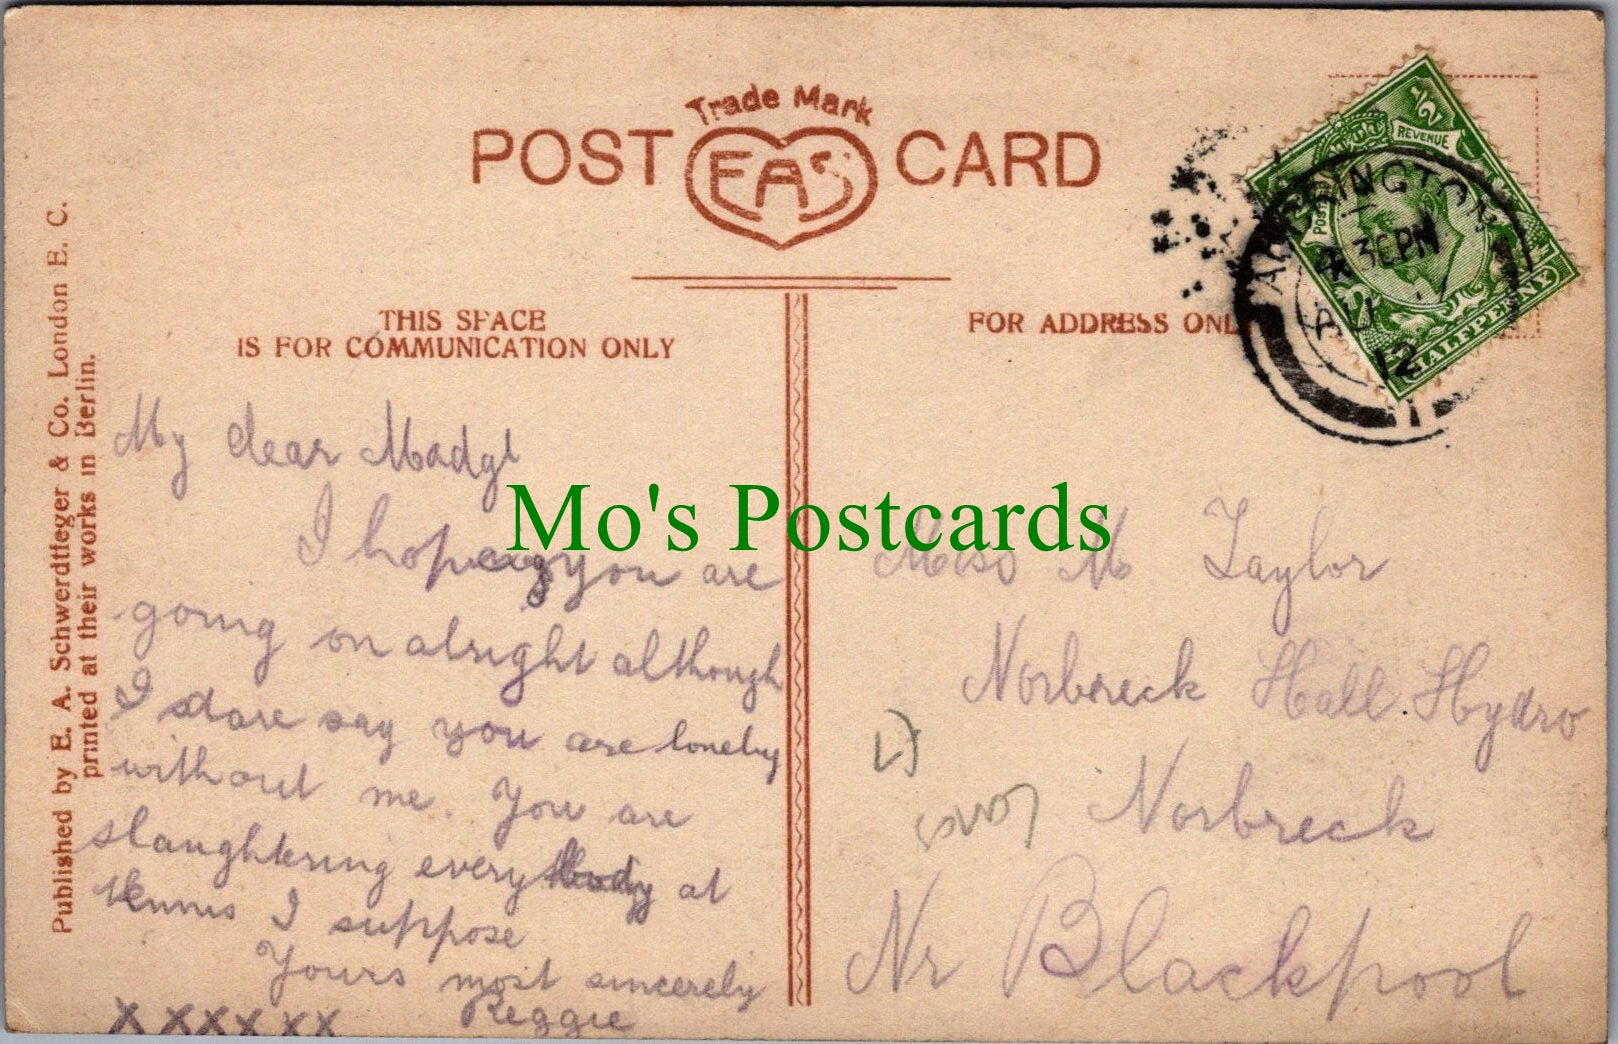 Trade Mark
POST EAS CARD
THIS SPACE
IS FOR COMMUNICATION ONLY
FOR ADDRESS ONL
REVENUE
1/2
HALFPENNY
30 PM
AU 7
12
1
Published by E. A. Schwerdtfeger & Co. London E. C.
printed at their works in Berlin.
Mo's Postcards
My dear Madge
I hope you are
going on alright although
I dare say you are lonely
without me. You are
slaughtering everybody at
tennis I suppose
Yours most sincerely
Reggie
X XXXX XX
Miss M Taylor
Norbreck Hall Hydro
Norbreck
Nr Blackpool